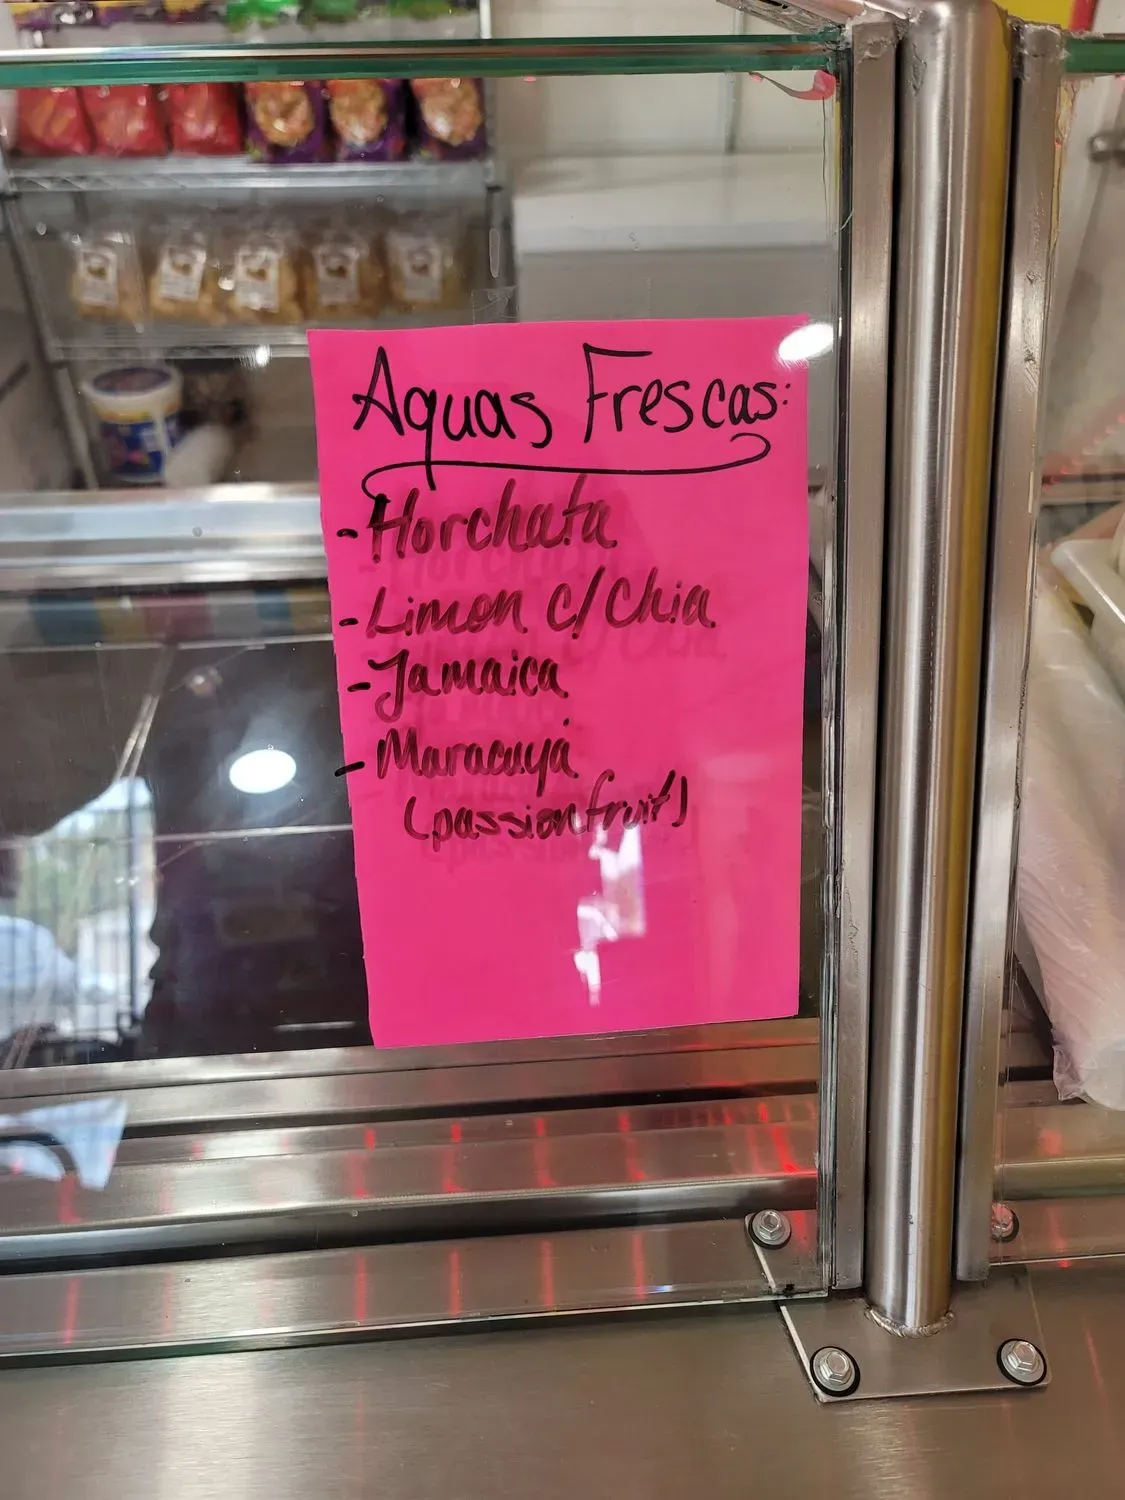 Aquas Frescas:
- Horchata
- Limon c/ Chia
- Jamaica
- Maracuyá
(passion fruit)